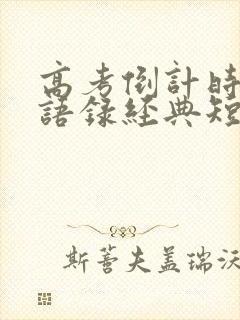 高考倒計時
語録經典短
斯蒼夫盖瑞沃